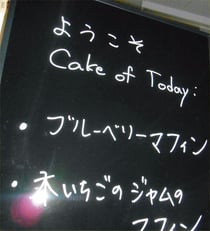 ようこそ
Cake of Today:
・ブルーベリーマフィン
・木いちごのジャムの
マフィン